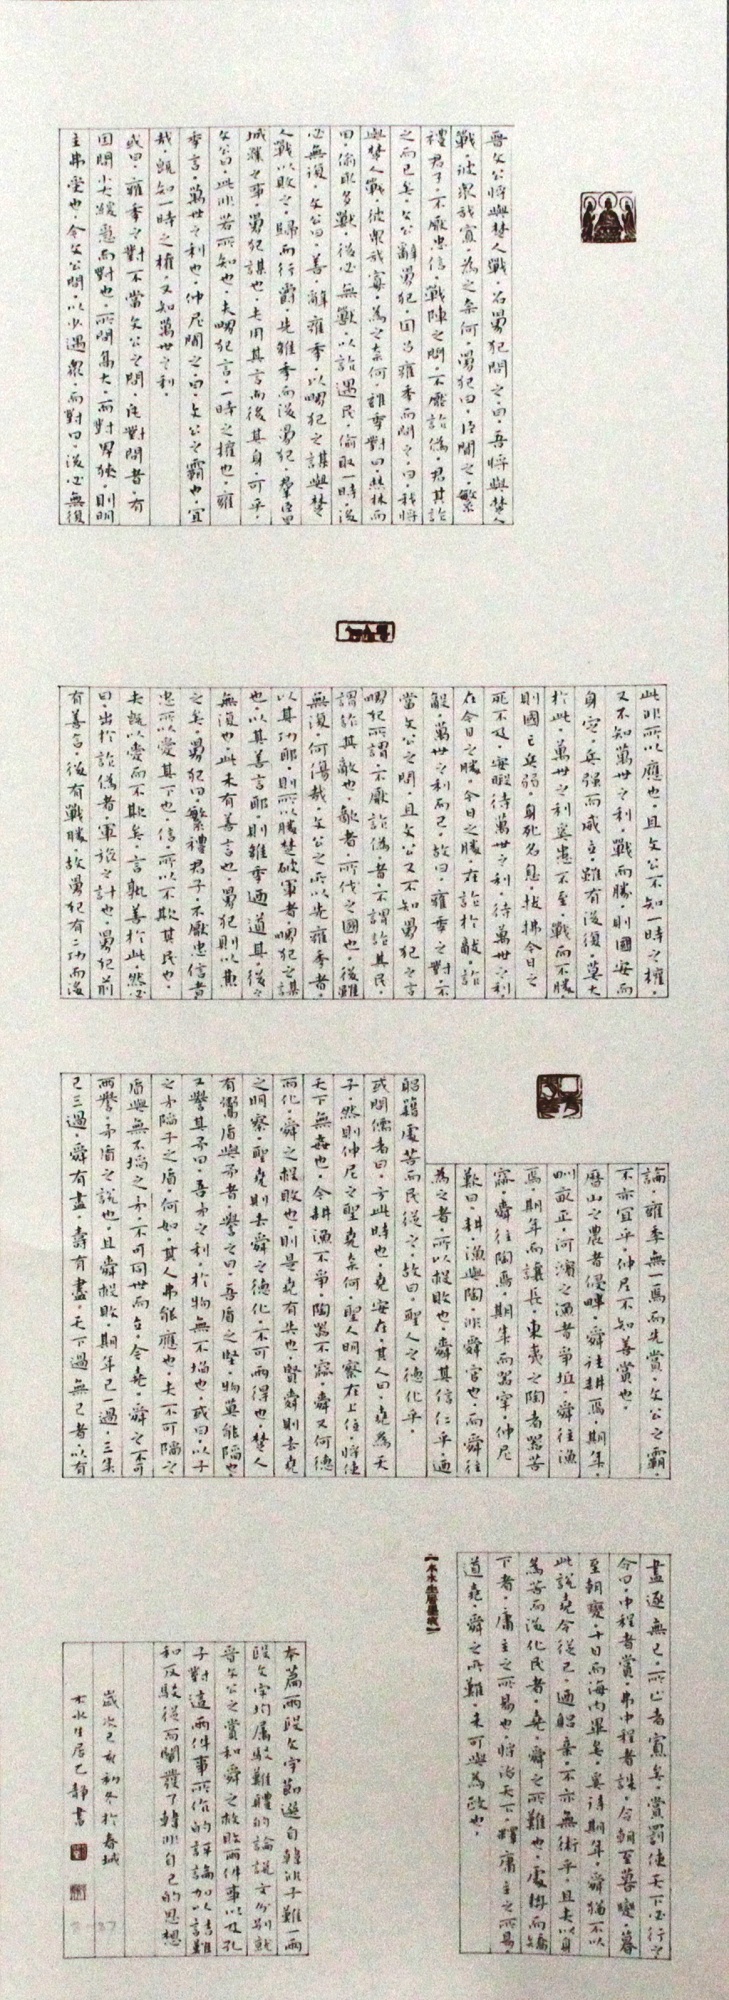 晉文公將與楚人戰·召舅犯問之·曰·吾將與楚人
戰·彼眾我寡·為之奈何·舅犯曰·臣聞之·繁
禮君子·不厭忠信·戰陣之間·不厭詐偽·君其詐
之而已矣·文公辭舅犯·因召雍季而問之·曰·我將
與楚人戰·彼眾我寡·為之奈何·雍季對曰·焚林而
田·偷取多獸·後必無獸·以詐遇民·偷取一時·後
必無復·文公曰·善·辭雍季·以舅犯之謀與楚
人戰以敗之·歸而行爵·先雍季而後舅犯·群臣曰
城濮之事·舅犯謀也·夫用其言而後其身·可乎·
文公曰·此非若所知也·夫舅犯言·一時之權也·雍
季言·萬世之利也·仲尼聞之·曰·文公之霸也·宜
哉·既知一時之權·又知萬世之利·
或曰·雍季之對不當文公之問·凡對問者·有
因問小大緩急而對也·所問高大·而對卑狹·則明
主弗受也·今文公問·以少遇眾·而對曰·後必無復
此非所以應也·且文公不知一時之權·
又不知萬世之利·戰而勝·則國安而
身定·兵強而威立·雖有後復·莫大
於此·萬世之利奚患不至·戰而不勝
則國亡兵弱·身死名息·拔拂今日之
死不及·安暇待萬世之利·待萬世之利·
在今日之勝·今日之勝·在詐於敵·詐
敵·萬世之利而已·故曰·雍季之對·不
當文公之問·且文公又不知舅犯之言
舅犯所謂·不厭詐偽·者·不謂詐其民·
謂詐其敵也·敵者·所伐之國也·後雖
無復·何傷哉·文公之所以先雍季者·
以其功耶·則所以勝楚破軍者·舅犯之謀
也·以其善言耶·則雍季迺道其·後之
無復也·此未有善言也·舅犯則以兼
之矣·舅犯曰·繁禮君子·不厭忠信者
忠所以愛其下也·信·所以不欺其民也·
夫既以愛而不欺矣·言孰善於此·然必
曰·出於詐偽者·軍旅之計也·舅犯前
有善言·後有戰勝·故舅犯有二功而後
論·雍季無一焉而先賞·文公之霸·
不亦宜乎·仲尼不知善賞也·
歷山之農者侵畔·舜往耕焉·期年·
甽畝正·河濱之漁者爭坻·舜往漁
焉·期年而讓長·東夷之陶者器苦
窳·舜往陶焉·期年而器牢·仲尼
歎曰·耕·漁與陶·非舜官也·而舜往
為之者·所以救敗也·舜其信仁乎·迺
躬藉處苦而民從之·故曰·聖人之德化乎·
或問儒者曰·方此時也·堯安在·其人曰·堯為天
子·然則仲尼之聖堯奈何·聖人明察在上位·將使
天下無姦也·今耕漁不爭·陶器不窳·舜又何德
而化·舜之救敗也·則是堯有失也·賢舜則去堯
之明察·聖堯則去舜之德化·不可兩得也·楚人
有鬻盾與矛者·譽之曰·吾盾之堅·物莫能陷也
又譽其矛曰·吾矛之利·於物無不陷也·或曰·以子
之矛陷子之盾·何如·其人弗能應也·夫不可陷之
盾與無不陷之矛·不可同世而立·今堯·舜之不可
兩譽·矛盾之說也·且舜救敗·期年已一過·三年
已三過·舜有盡·壽有盡·天下過無已者·以有
盡逐無已·所止者寡矣·賞罰使天下必行之
令曰·中程者賞·弗中程者誅·令朝至暮變·暮
至朝變·十日而海內畢矣·奚待期年·舜猶不以
此說堯令從己·迺躬親·不亦無術乎·且夫以身
為苦而後化民者·堯·舜之所難也·處勢而矯
下者·庸主之所易也·將治天下·釋庸主之所易·
道堯·舜之所難·未可與為政也·
本篇兩段文字節選自韓非子難一兩
段文字均屬駁難體的論說文分別就
晉文公之賞和舜之救敗兩件事以及孔
子對這兩件事所作的評論加以詰難
和反駁從而闡發了韓非自己的思想
歲次己亥初冬於春城
木水生居己靜書